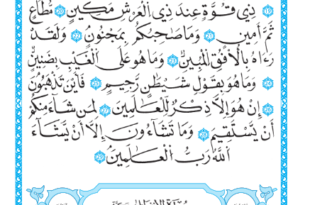 ذِي قُوَّةٍ عِندَ ذِي ٱلْعَرْشِ مَكِينٍ ۝ مُّطَاعٍ
ثَمَّ أَمِينٍ ۝ وَمَا صَاحِبُكُم بِمَجْنُونٍ ۝ وَلَقَدْ
رَءَاهُ بِٱلْأُفُقِ ٱلْمُبِينِ ۝ وَمَا هُوَ عَلَى ٱلْغَيْبِ بِضَنِينٍ
۝ وَمَا هُوَ بِقَوْلِ شَيْطَٰنٍ رَّجِيمٍ ۝ فَأَيْنَ تَذْهَبُونَ
۝ إِنْ هُوَ إِلَّا ذِكْرٌ لِّلْعَٰلَمِينَ ۝ لِمَن شَآءَ مِنكُمْ
أَن يَسْتَقِيمَ ۝ وَمَا تَشَآءُونَ إِلَّآ أَن يَشَآءَ
ٱللَّهُ رَبُّ ٱلْعَٰلَمِينَ ۝